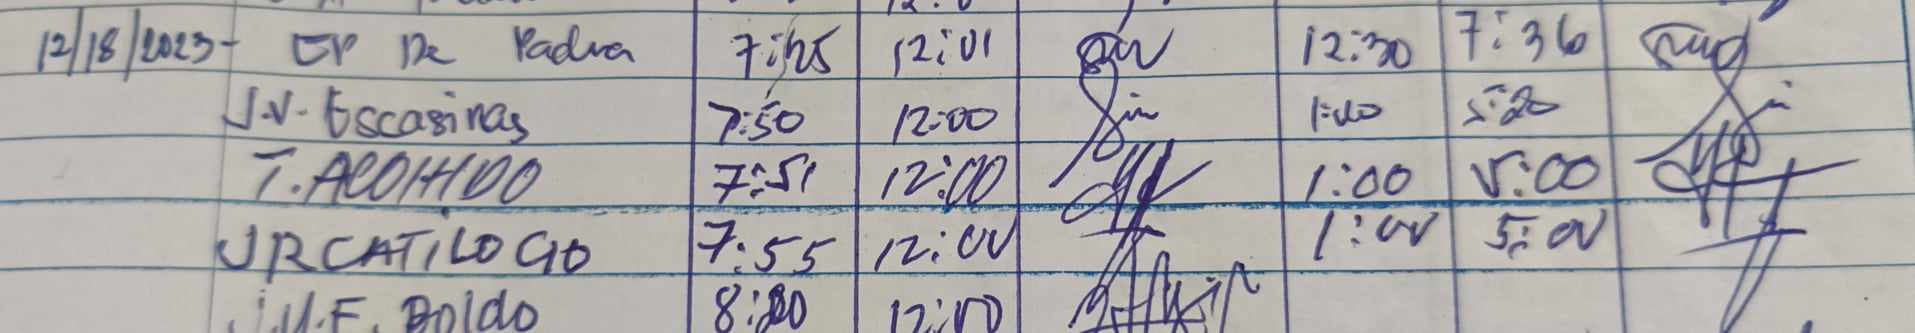 12/18/2023- EP De Padua 7:45 12:01 12:30 7:36
J.V. Escasinas 7:50 12:00 1:00 5:20
T. ACOHIDO 7:51 12:00 1:00 5:00
JR CATILOGO 7:55 12:00 1:00 5:00
Boldo 12:00